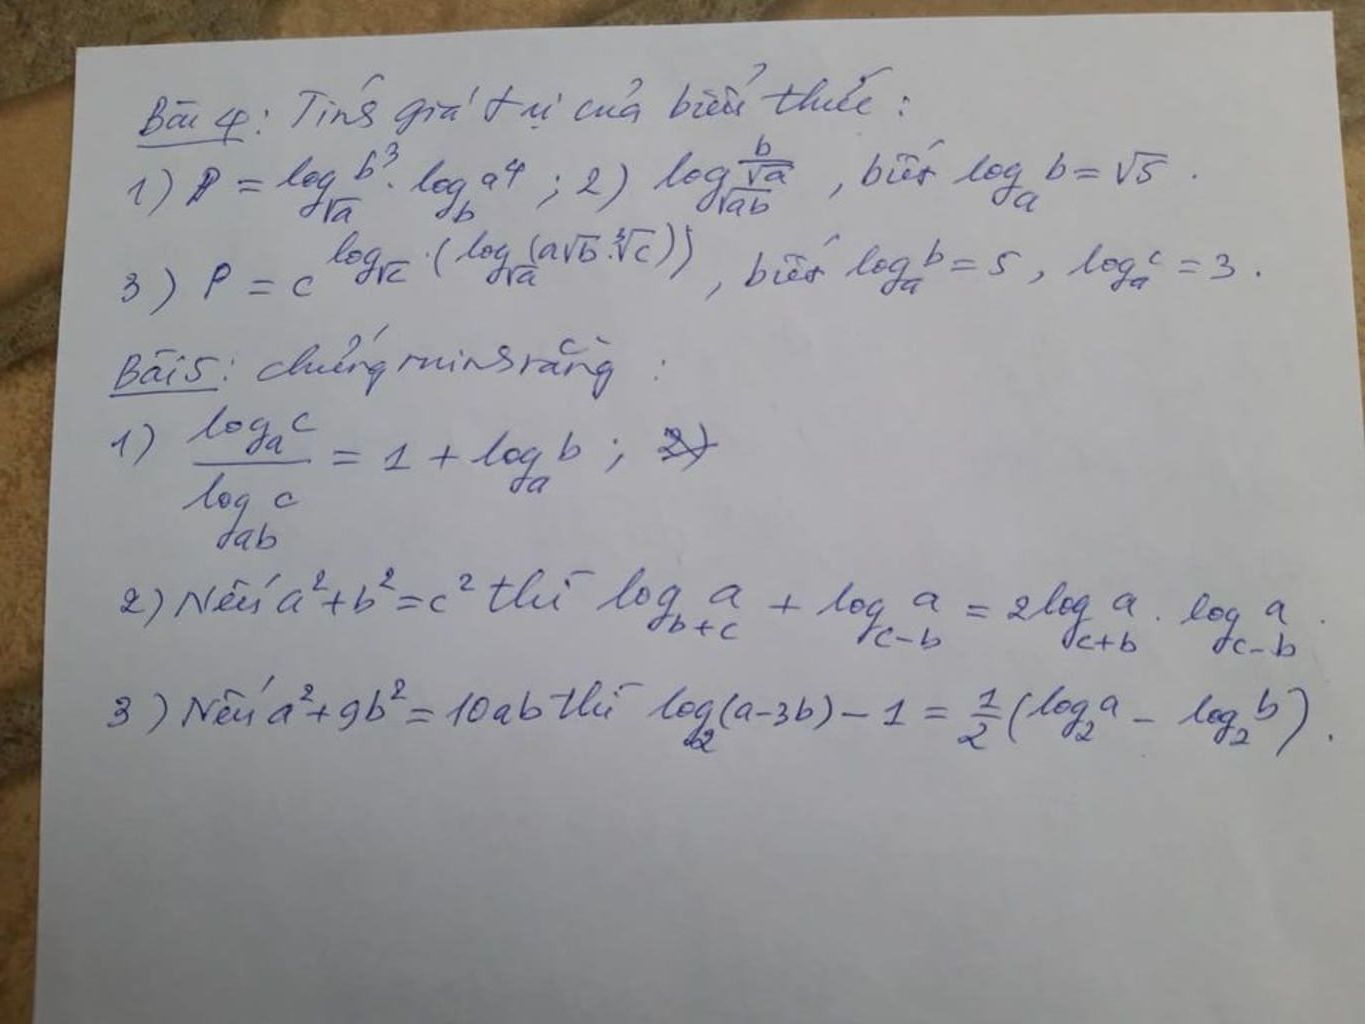 Bài 4: Tính giá trị của biểu thức:
1) P = log_{√a} b³ · log_b a⁴ ; 2) log_{√ab} b/√a , biết log_a b = √5 .
3) P = c^{log_{√c} (log_{√a} (a√b·∛c))} , biết log_a b = 5 , log_a c = 3 .
Bài 5: chứng minh rằng :
1) log_a c / log_{ab} c = 1 + log_a b ;
2) Nếu a² + b² = c² thì log_{b+c} a + log_{c-b} a = 2log_{c+b} a . log_{c-b} a .
3) Nếu a² + 9b² = 10ab thì log₂(a-3b) - 1 = 1/2 (log₂ a - log₂ b) .